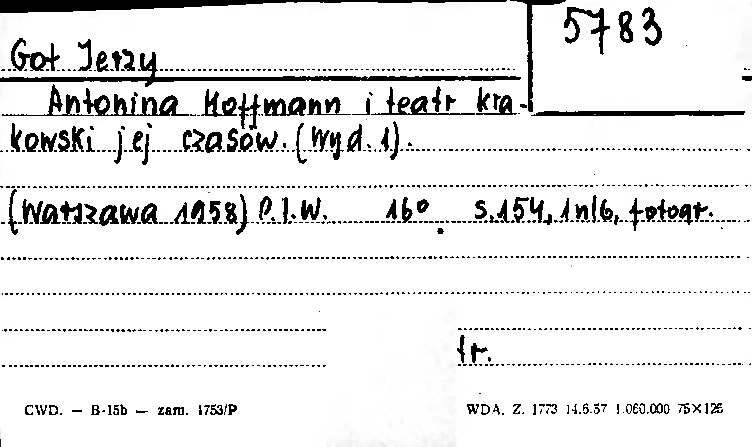 5783
Got Jerzy
Antonina Hoffmann i teatr kra-
kowski jej czasów. (Wyd. 1).
(Warszawa 1958) P.I.W. 16°. s. 154, 1nlb, fotogr.
tr.
CWD. — B-15b — zam. 1753/P
WDA. Z. 1773 14.6.57 1.060.000 75×125